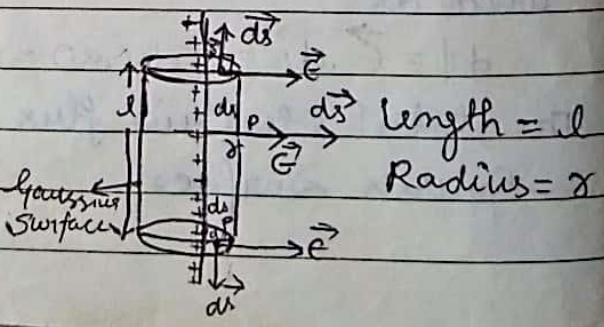 ds
E
l
ds
P
ds
Length = l
r
E
Radius = r
Gaussian
Surface
ds
P
E
ds